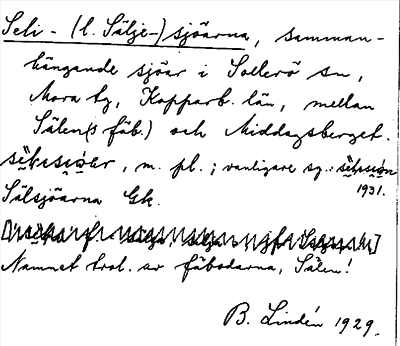 Seli- (l. Sälje-) sjöarna, samman-
hängande sjöar i Sollerö sn,
Mora tg, Kopparb. län, mellan
Sälen(s fäb.) och Middagsberget.
m. pl.; vanligare sg.:
1931.
Sälsjöarna Gk.
Namnet trol. av fäbodarna, Sälen!
B. Lindén 1929.